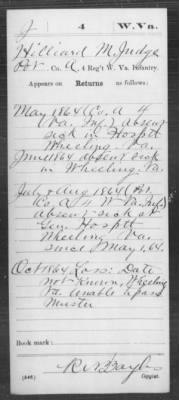 J 4 W. Va.
Hilliard M. Judge
Pvt. Co. A, 4 Reg't W. Va. Infantry.
Appears on Returns as follows:
May 1864 Co. A 4
(Va. Inf.) absent
sick in Hospt
Wheeling Va.
June 1864 absent sick
in Wheeling Va.
July & Aug 1864 (Pvt.
Co. A 4 W Va Inf.)
absent sick at
Gen. Hospt
Wheeling Va.
since May 1, 64.
Oct 1864 Loss: Date
not known, Wheeling
Va. Unable
Muster
Book mark:
(546) Copyist.